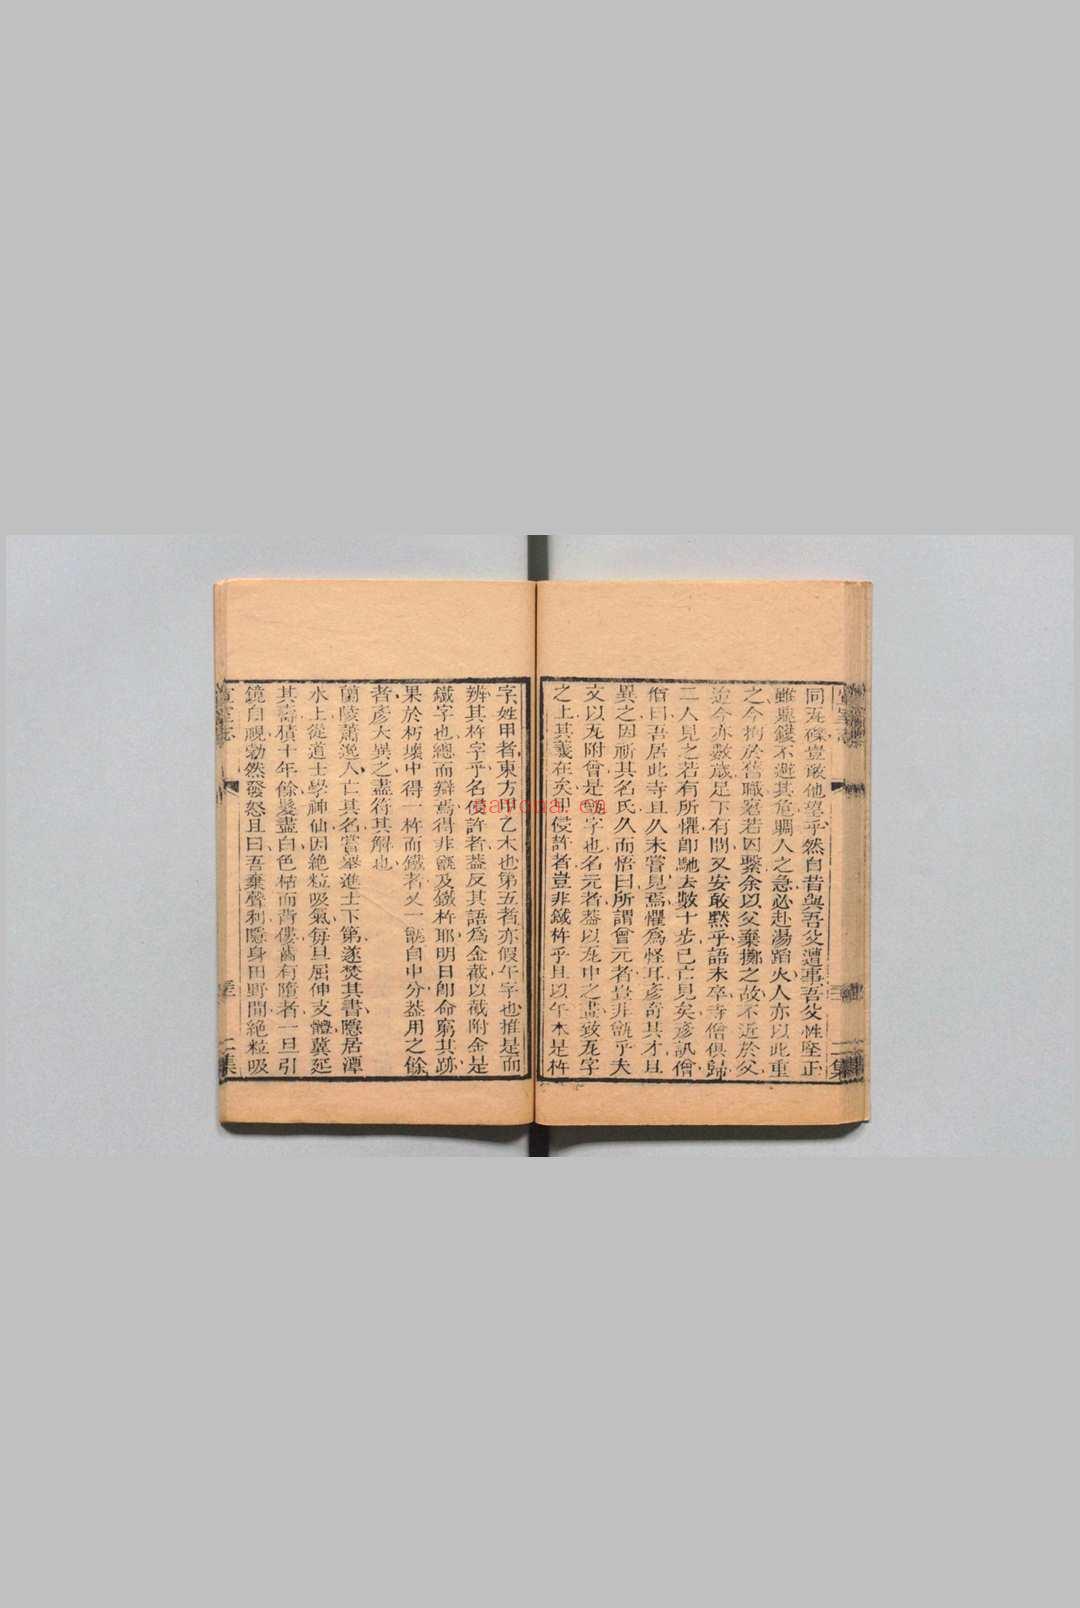 同瓦礫豈敢他望乎然自昔與吾父遭事吾父性堅正
雖鼎鑊不避其危賙人之急必赴湯蹈火人亦以此重
之今拘於舊職窘若囚繫余以父棄擲之故不近於父
迨今亦數歲足下有問又安敢默乎語未卒寺僧俱歸
二人見之若有所懼卽馳去數十步已亡見矣彥訊僧
僧曰吾居此寺且久未嘗見焉懼爲怪耳彥奇其才且
異之因祈其名氏久而悟曰所謂曾元者豈非甑乎夫
文以瓦附曾是甑字也名元者蓋以瓦中之畫致瓦字
之上其義在矣甲侵訐者豈非鐵杵乎且以午木是杵
字姓甲者東方甲乙木也第五者亦假午字也推是而
辨其杵字乎名侵訐者蓋反其語爲金截以截附金是
鐵字也總而辯焉得非甑及鐵杵耶明日卽命窮其跡
果於朽壞中得一杵而鐵者又一甑自中分蓋用之餘
者彥大異之盡符其解也
蘭陵蕭逸人亡其名嘗舉進士下第遂焚其書隱居潭
水上從道士學神仙因絶粒吸氣每旦屈伸支體冀延
其壽積十年餘髮盡白色枯而背僂齒有墮者一旦引
鏡自視勃然發怒且曰吾棄聲利隱身田野間絶粒吸
宣室志
二集